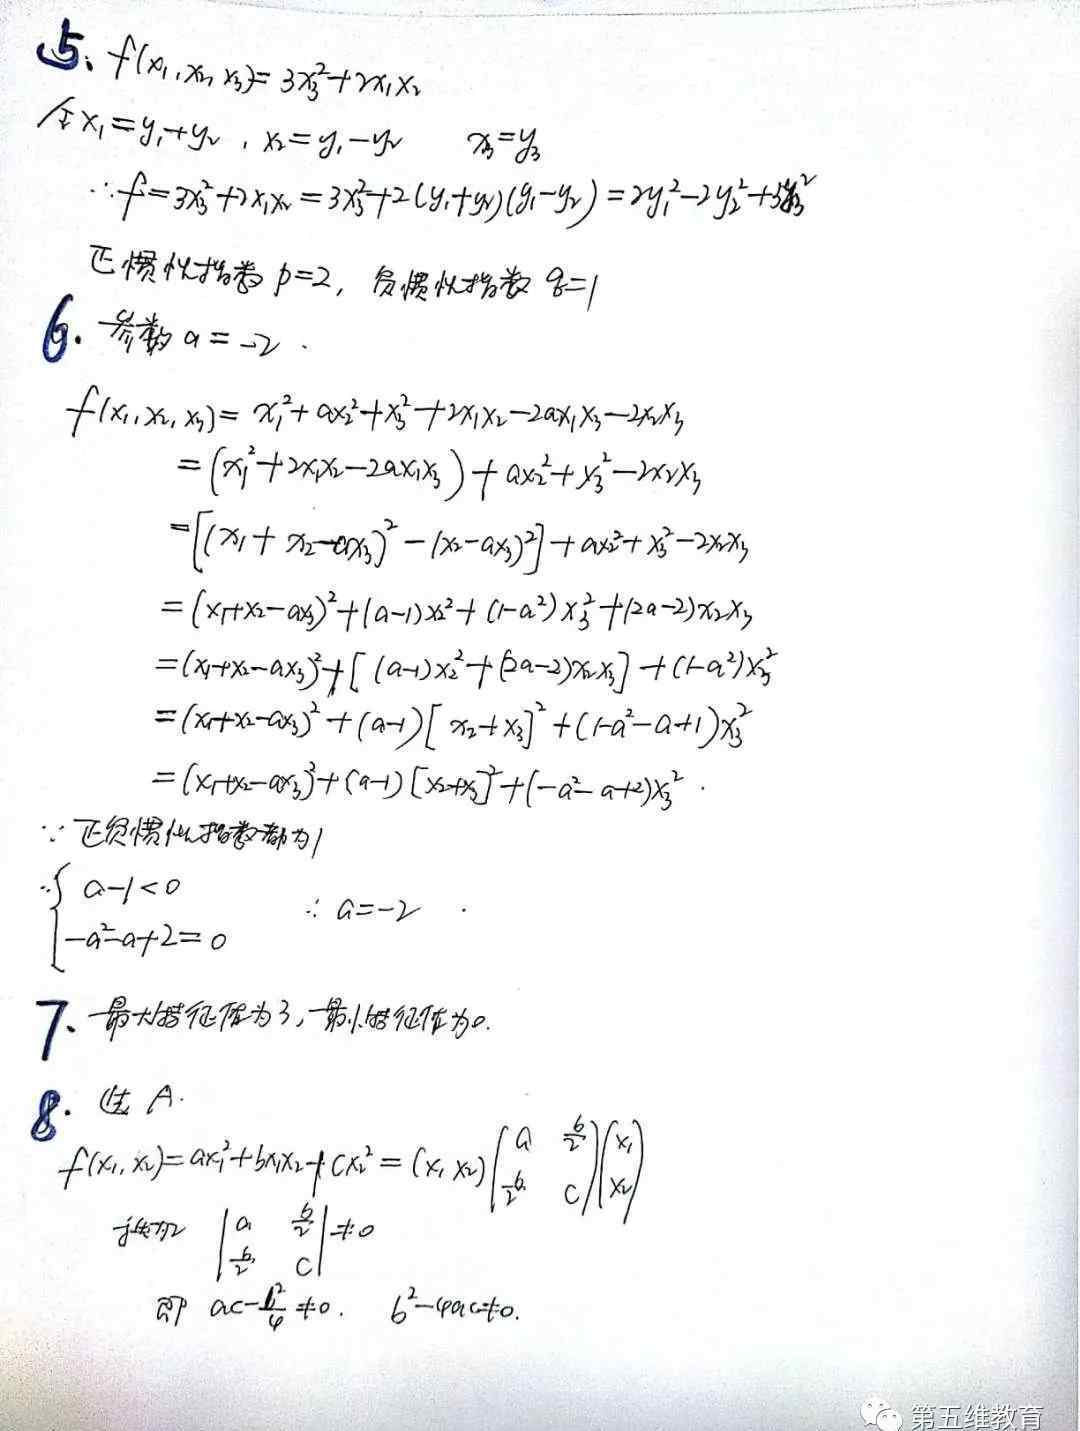 5、f(x₁,x₂,x₃)=3x₃²+2x₁x₂
令x₁=y₁+y₂,x₂=y₁-y₂ x₃=y₃
∴f=3x₃²+2x₁x₂=3x₃²+2(y₁+y₂)(y₁-y₂)=2y₁²-2y₂²+3y₃²
正惯性指数p=2,负惯性指数q=1
6.参数a=-2.
f(x₁,x₂,x₃)=x₁²+ax₂²+x₃²+2x₁x₂-2ax₁x₃-2x₂x₃
=(x₁²+2x₁x₂-2ax₁x₃)+ax₂²+x₃²-2x₂x₃
=[(x₁+x₂-ax₃)²-(x₂-ax₃)²]+ax₂²+x₃²-2x₂x₃
=(x₁+x₂-ax₃)²+(a-1)x₂²+(1-a²)x₃²+(2a-2)x₂x₃
=(x₁+x₂-ax₃)²+[(a-1)x₂²+(2a-2)x₂x₃]+(1-a²)x₃²
=(x₁+x₂-ax₃)²+(a-1)[x₂+x₃]²+(1-a²-a+1)x₃²
=(x₁+x₂-ax₃)²+(a-1)[x₂+x₃]²+(-a²-a+2)x₃².
∵正负惯性指数都为1
∴{a-1<0 ∴a=-2.
-a²-a+2=0
7、最大特征值为3,最小特征值为0.
8.选A.
f(x₁,x₂)=ax₁²+bx₁x₂+cx₂²=(x₁ x₂)(a b/2; b/2 c)(x₁; x₂)
秩为2 |a b/2; b/2 c|≠0
即 ac-b²/4≠0. b²-4ac≠0.
第五维教育